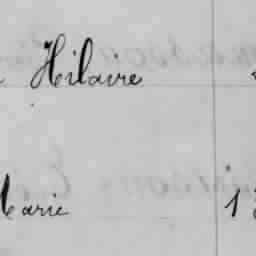 Hilaire
Marie 1